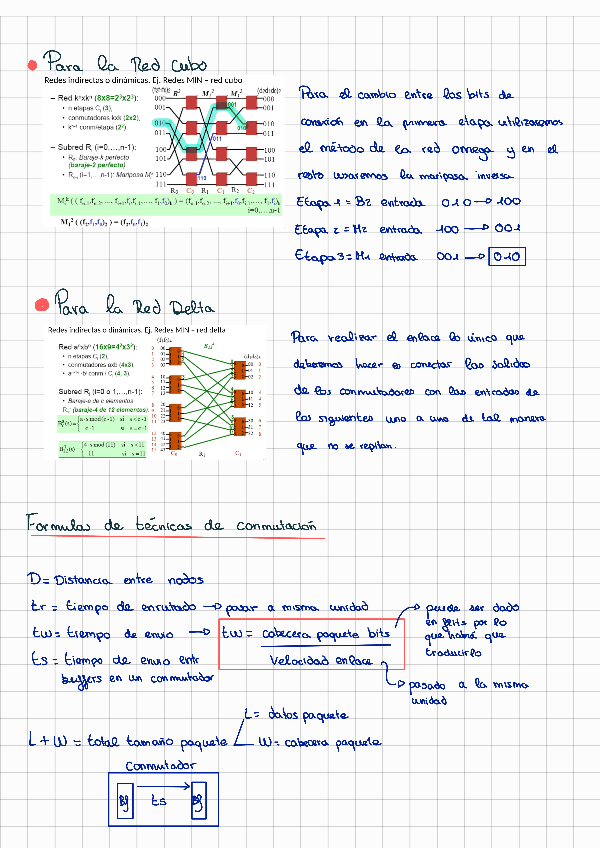 Para la Red Cubo
Redes indirectas o dinámicas. Ej. Redes MIN – red cubo
– Red kⁿxkⁿ (8x8=2³x2³):
• n etapas Cᵢ (3),
• conmutadores kxk (2x2),
• kⁿ⁻¹ conm/etapa (2²).
– Subred Rᵢ (i=0,…,n-1):
• R₀: Baraje-k perfecto
(baraje-2 perfecto)
Para el cambio entre los bits de
conexión en la primera etapa utilizaremos
el método de la red omega y en el
resto usaremos la mariposa inversa
Etapa 1 = B2 entrada 010 → 100
Etapa 2 = M2 entrada 100 → 001
Etapa 3 = M1 entrada 001 → 010
Para la Red Delta
Redes indirectas o dinámicas. Ej. Redes MIN – red delta
Red aⁿxbⁿ (16x9=4²x3²):
• n etapas Cᵢ (2),
• conmutadores axb (4x3)
Subred Rᵢ (i=0 o 1,…,n-1):
• Baraje-a de c elementos
(baraje-4 de 12 elementos).
Para realizar el enlace lo único que
debemos hacer es conectar las salidas
de los conmutadores con las entradas de
los siguientes uno a uno de tal manera
que no se repitan.
Formulas de técnicas de conmutación
D = Distancia entre nodos
tr = tiempo de enrutado → pasar a misma unidad
tw = tiempo de envio → tw = cabecera paquete bits
velocidad enlace
puede ser dado
en flits por lo
que habrá que
traducirlo
ts = tiempo de envio entr
buffers en un conmutador
pasado a la misma
unidad
L + W = total tamaño paquete
L = datos paquete
W = cabecera paquete
Conmutador
Bf ts Bf